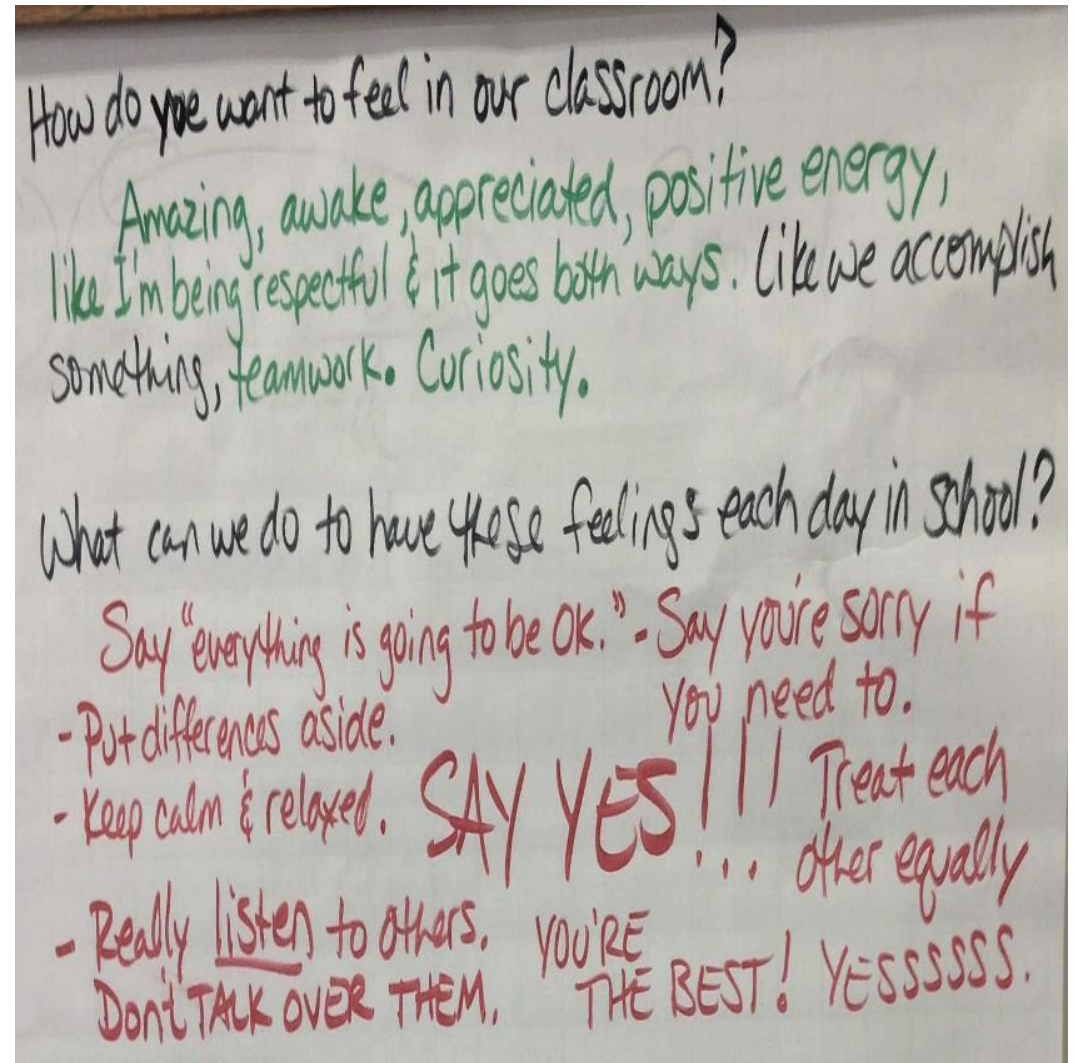 How do you want to feel in our classroom?
Amazing, awake, appreciated, positive energy,
like I'm being respectful & it goes both ways. Like we accomplish
something, teamwork. Curiosity.
What can we do to have these feelings each day in school?
Say "everything is going to be OK." - Say you're sorry if
you need to.
- Put differences aside.
- Keep calm & relaxed.
SAY YES!!!...
Treat each
other equally
- Really listen to others.
Don't TALK OVER THEM.
YOU'RE
THE BEST! YESSSSSS.